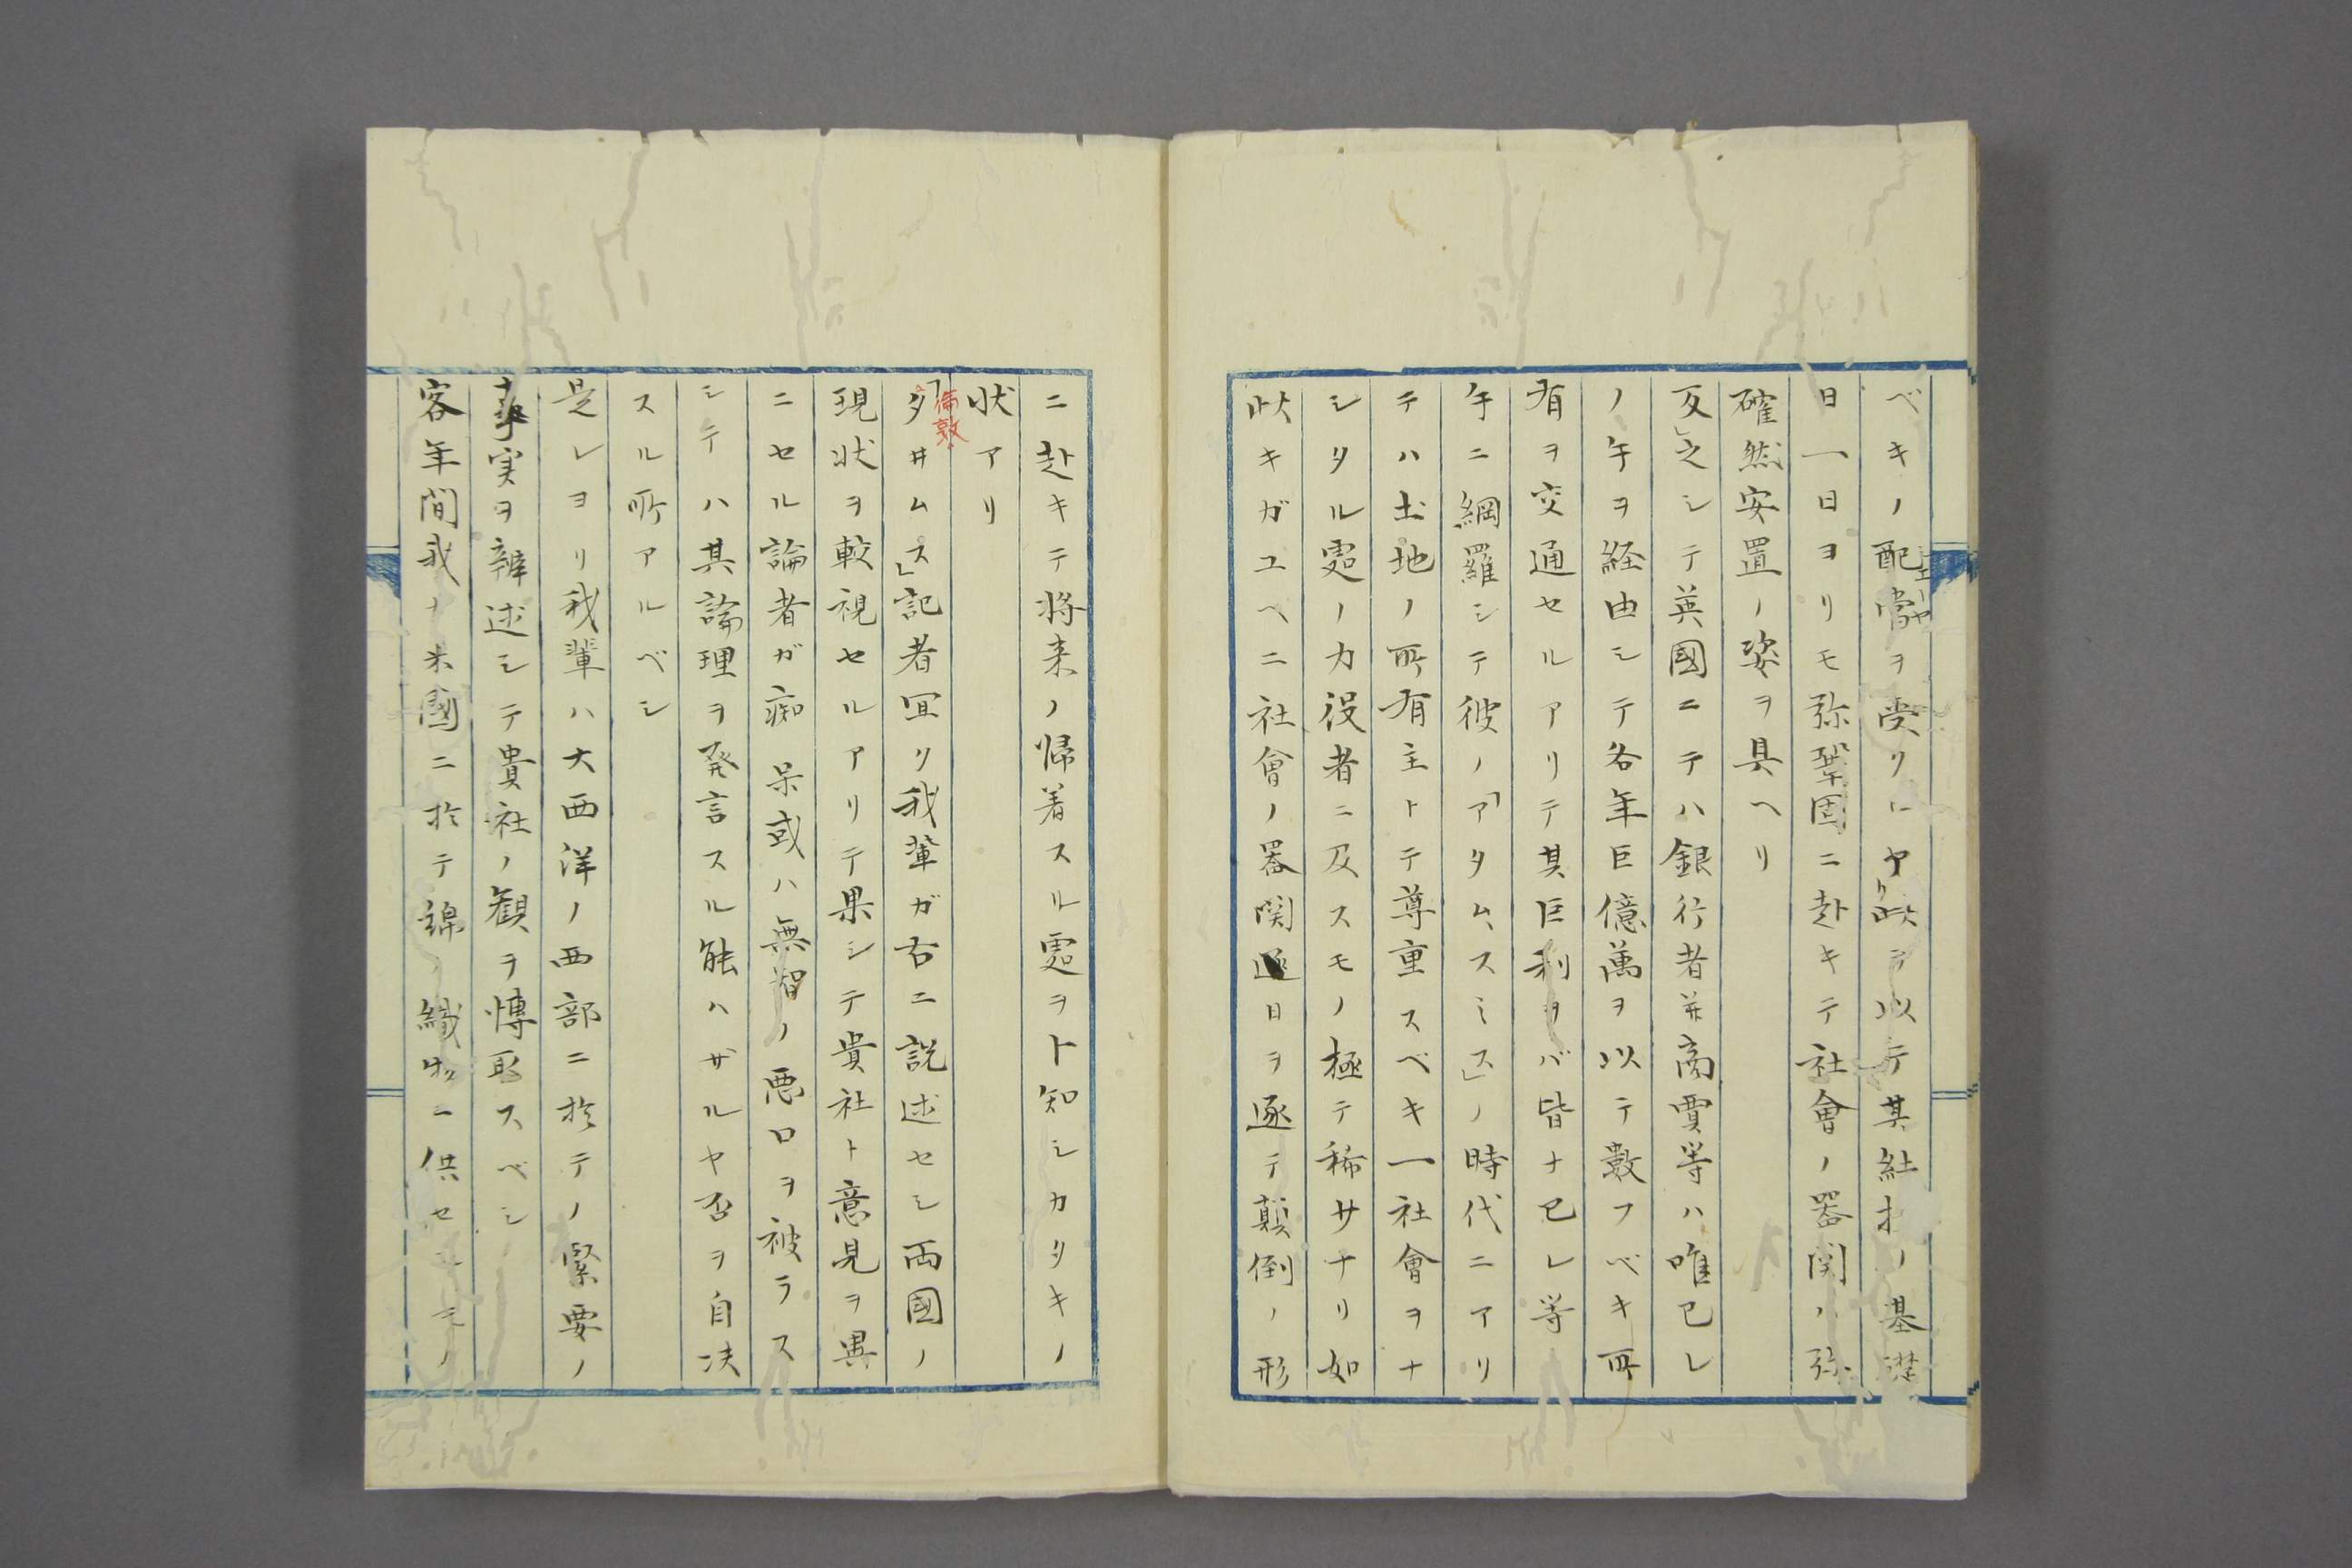 ベキノ配當ヲ受リニヤ此ヲ以テ其社ノ基礎
日一日ヨリモ弥鞏固ニ赴キテ社會ノ器関ハ弥
確然安置ノ姿ヲ具ヘリ
反之シテ英國ニテハ銀行者并商賈等ハ唯已レ
ノ手ヲ経由シテ各年巨億萬ヲ以テ數フベキ所
有ヲ交通セルアリテ其巨利ヲバ皆ナ已レ等
手ニ網羅シテ彼ノ「アタム、スミス」ノ時代ニアリ
テハ土地ノ所有主トテ尊重スベキ一社會ヲナ
シタル處ノ力役者ニ及スモノ極テ稀サナリ如
此キガユヘニ社會ノ器関日ヲ逐テ顛倒ノ形
ニ赴キテ将来ノ帰着スル處ヲト知シカタキノ
状アリ
倫敦
「タイムス」記者冝リ我輩ガ右ニ説述セシ両國ノ
現状ヲ較視セルアリテ果シテ貴社ト意見ヲ異
ニセル論者ガ痴呆或ハ無智ノ悪口ヲ被ラス
シテハ其論理ヲ発言スル能ハザルヤ否ヲ自决
スル所アルベシ
是レヨリ我輩ハ大西洋ノ西部ニ於テノ緊要ノ
事実ヲ辨述シテ貴社ノ観ヲ博取スベシ
客年間我ノ米國ニ於テ綿ノ織物ニ供セシモノ